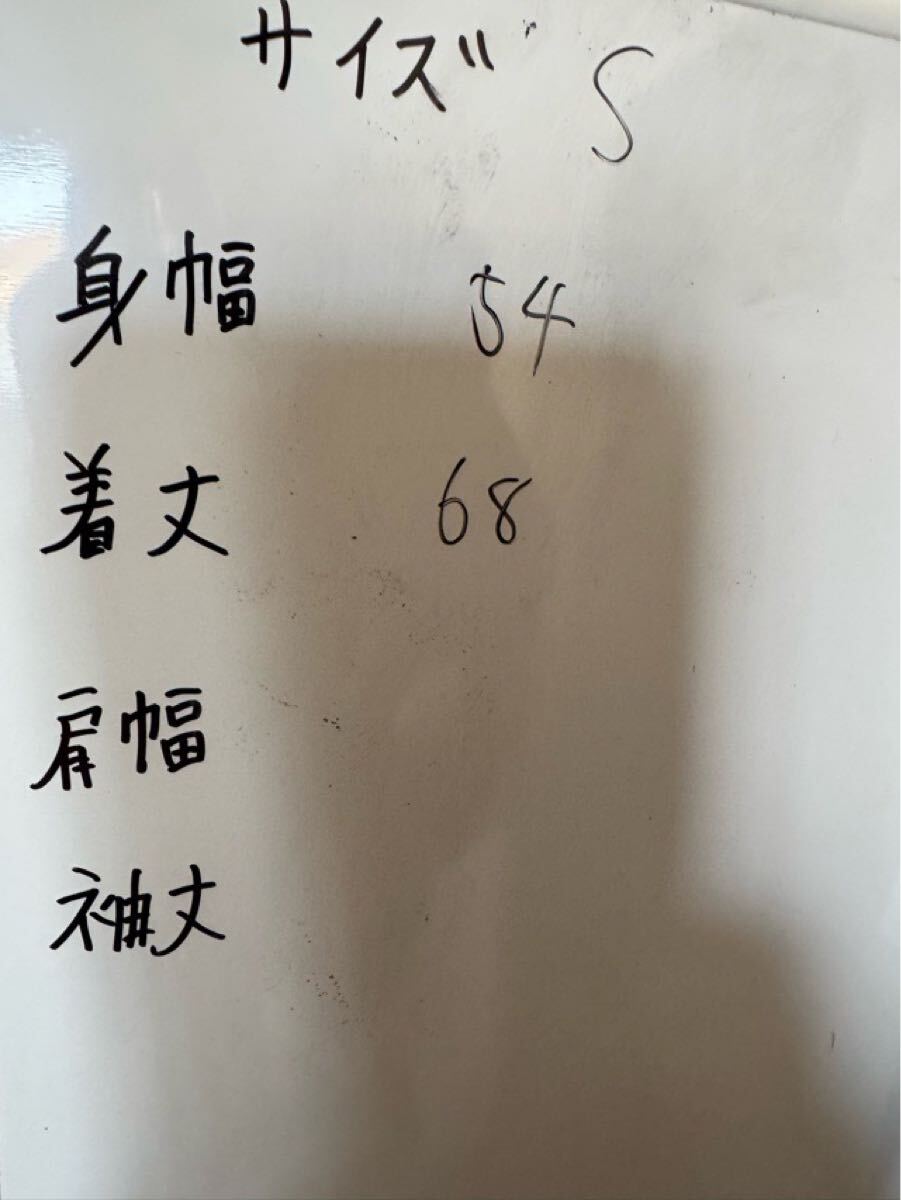 サイズ S
身幅 54
着丈 68
肩幅
袖丈